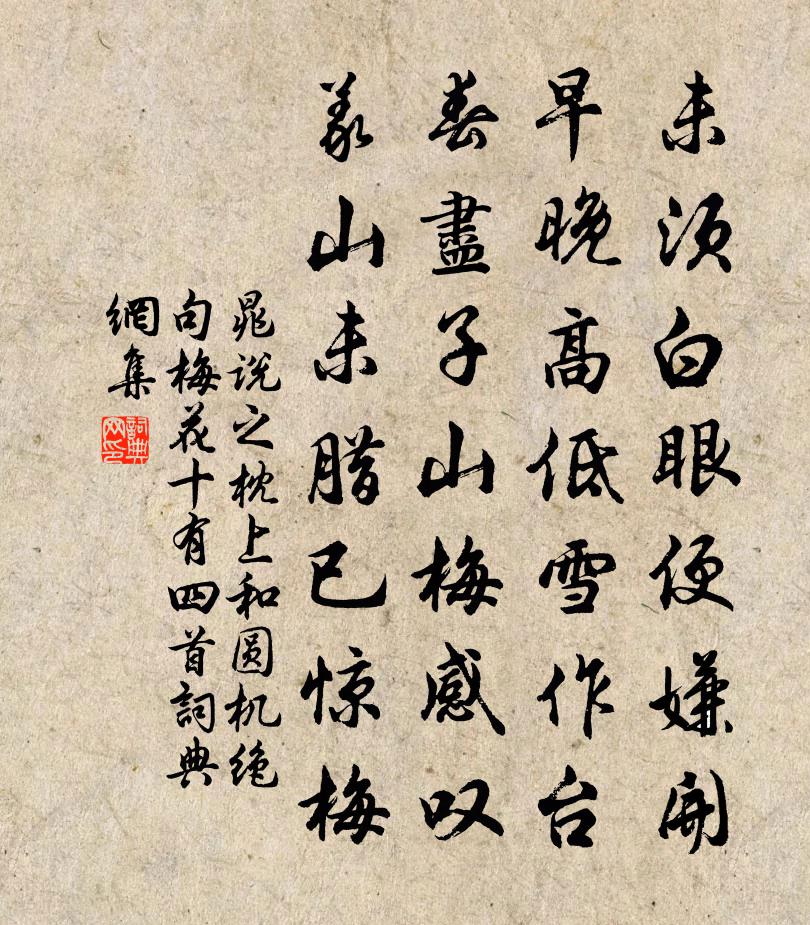 未须白眼便嫌开
早晚高低雪作台
春盡子山梅感叹
义山未腊已惊梅
晁说之枕上和圆机绝
句梅花十有四首詞典
網集
詞典
网印